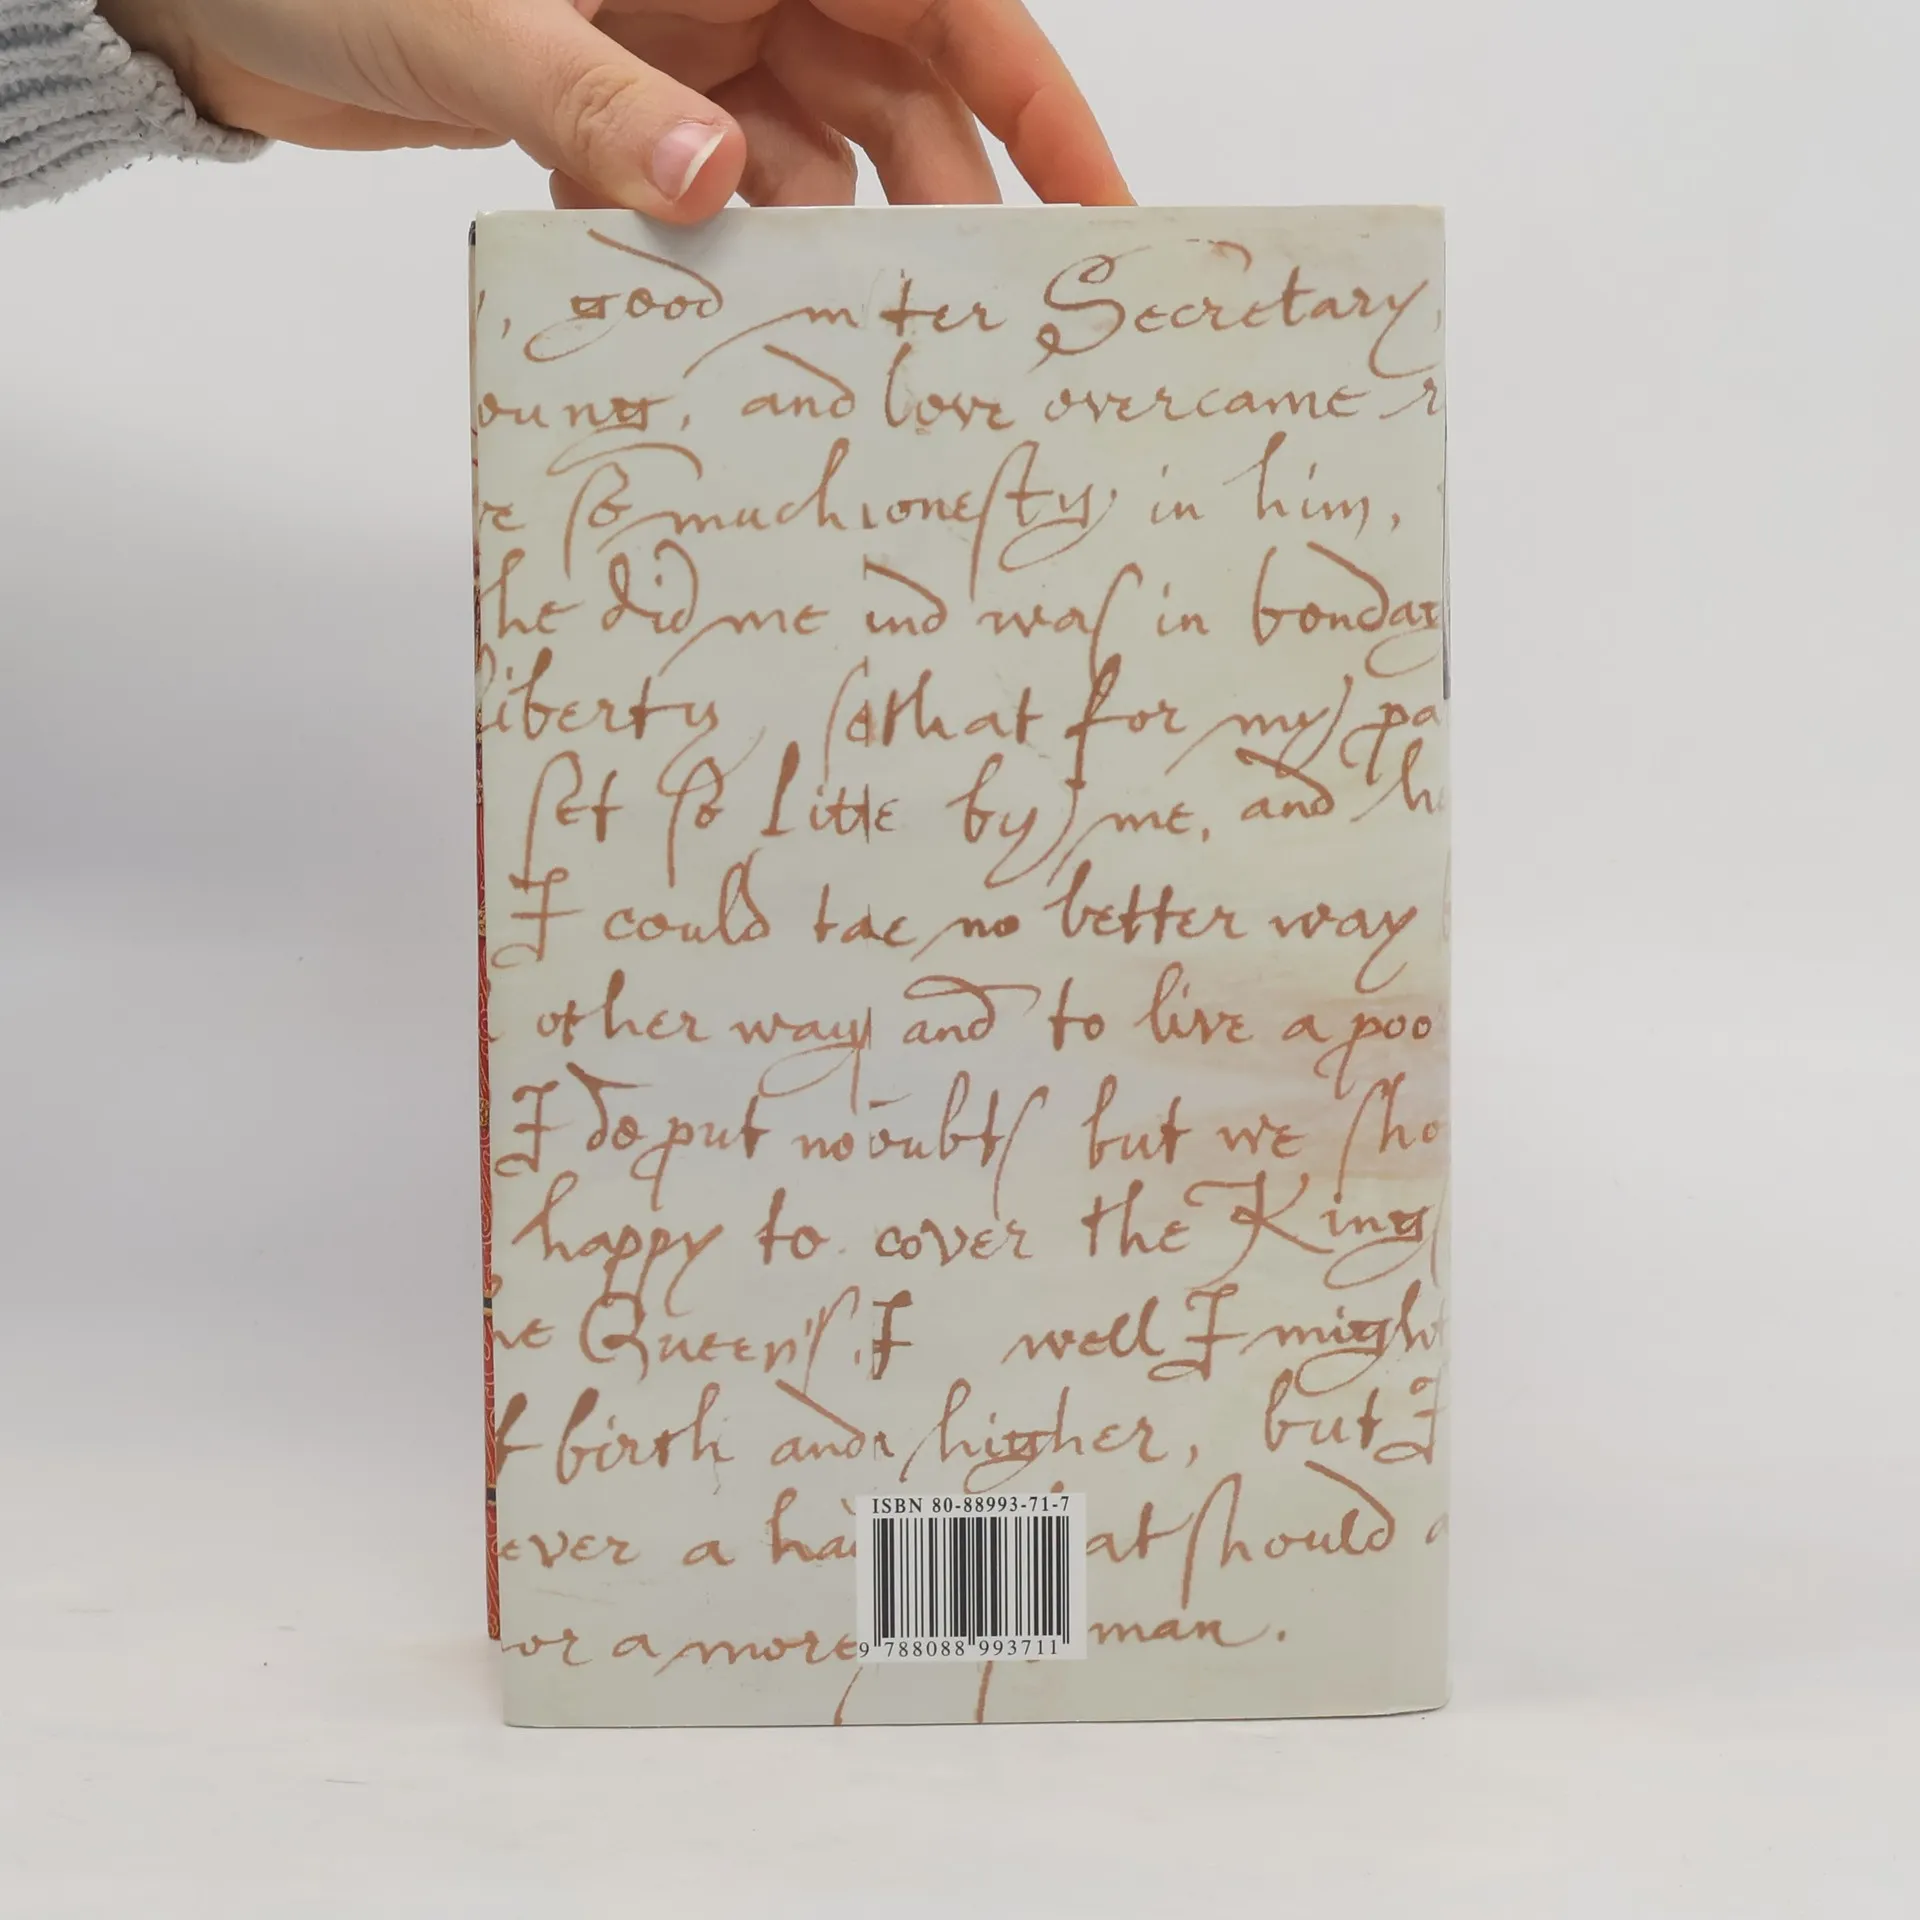 , good m ter Secretary,
oung, and love overcame r
re so much onesty in him,
he did me and was in bondag
liberty so that for my pa
set so little by me, and he
I could tae no better way
other way and to live a poo
I do put no oubts but we sho
happy to cover the King
he Queen's. I well I might
f birth and higher, but I
ever a ha at should a
or a more man.
ISBN 80-88993-71-7
9 788088 993711